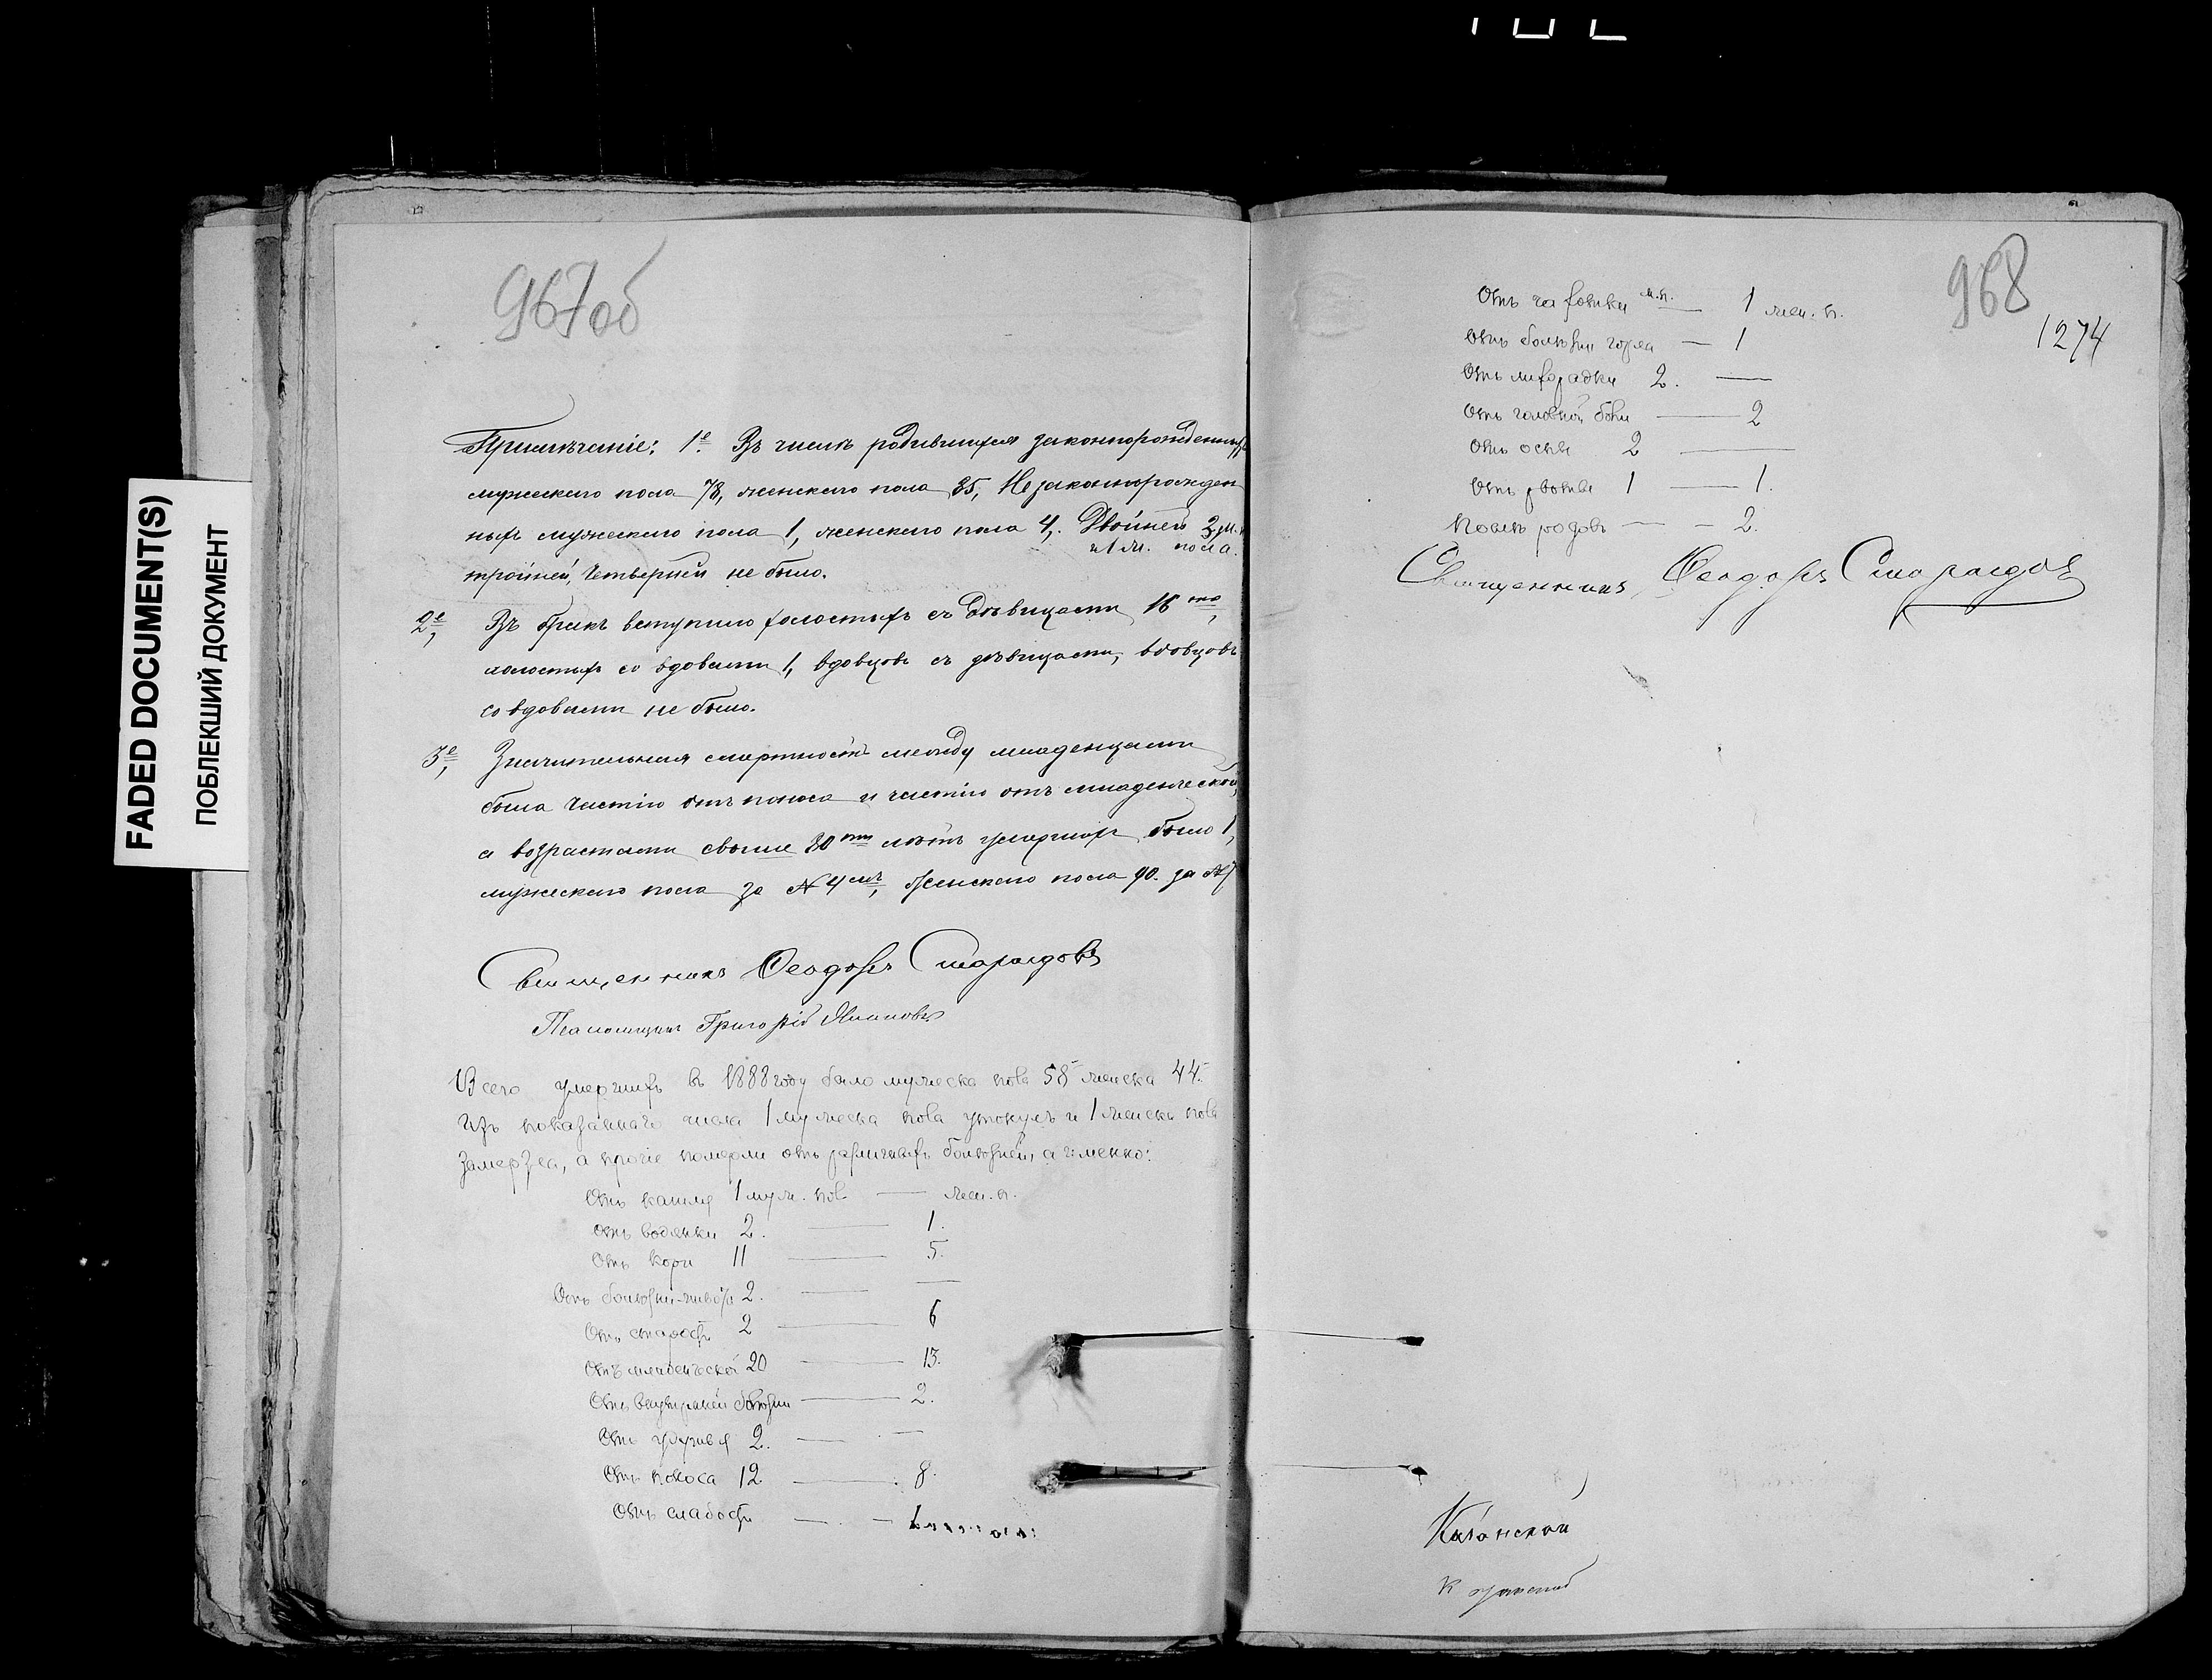 967об
Примѣчаніе: 1е. Въ числѣ родившихся законнорожденныхъ
мужескаго пола 78, женскаго пола 85, Незаконнорожден
ныхъ мужескаго пола 1, женскаго пола 4. Двойней 2 м.
и 1 ж. пола.
тройней, четверней не было.
2е, Въ бракъ вступило холостыхъ съ дѣвицами 16
холостыхъ со вдовами 1, вдовцовъ съ дѣвицами, вдовцовъ
со вдовами не было.
3е, Значительная смертность между младенцами
была частію отъ поноса и частію отъ младенческой,
а возрастами свыше 80ти лѣтъ умершихъ было 1,
мужескаго пола за № 4мъ, женскаго пола 90. за №
Священникъ Ѳеодоръ Смарагдовъ
Псаломщикъ Григорій
Всего умершихъ въ 1888 году было мужеска пола 58 женска 44.
Изъ показаннаго числа 1 мужеска пола утонулъ и 1 женска пола
замерзла, а прочіе померли отъ различныхъ болѣзней, а именно:
Отъ кашля 1 муж. пол. — жен. п.
отъ водянки 2. — 1.
Отъ кори 11 — 5.
Отъ болѣзни живота 2. — —
Отъ старости 2 — 6
Отъ младенческой 20 — 13.
Отъ внутренней болѣзни — 2.
Отъ 2. — —
Отъ поноса 12. — 8.
Отъ слабости — — 1
FADED DOCUMENT(S)
ПОБЛЕКШИЙ ДОКУМЕНТ
968
1274
Отъ чахотки м.п. — 1 жен. п.
Отъ болѣзни горла — 1
Отъ лихорадки 2. —
Отъ головной боли — 2
Отъ оспы 2 —
Отъ рвоты 1 — 1.
Послѣ родовъ — — 2.
Священникъ Ѳеодоръ Смарагдовъ
Казанской